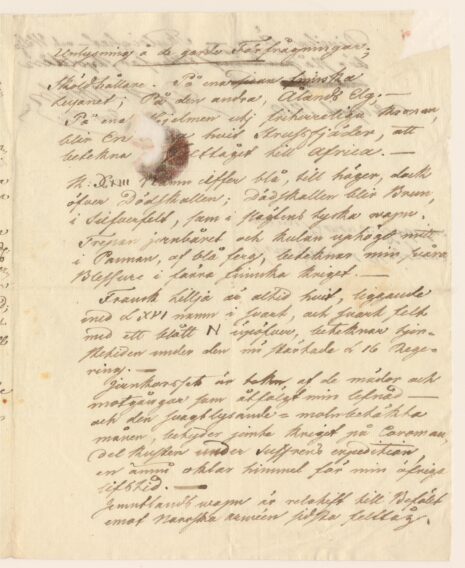 Upplysning å de gorde Förfrågningar;
Sköldhållare. På ena sidan finska
Lejonet; På den andra, Ålands Elg,—
På ena Hjelmen utj friherrelige Kronan,
blir En hvit Strutsfjäder, att
betekna tåget till Africa. —
K. XIII namn ciffer blå, till höger, dock
öfver Dödskallen; Dödskallen blir Brun,
i Silfverfelt, som i slägtens tyska wapn.
Trepan jernbäret och kulan uphögt mitt
i Pannan, af blå färg, beteknar min svåra
Blessure i förra finnska kriget —
Fransk lillja är altid hvit, liggande
med L XVI namn i svart, och svart felt
med ett blått N inpå, betecknar tjen-
stetiden under den nu störtade L 16 Rege-
ring. —
Jernkorsset är tokn, af de mödor och
motgångar som åtfölgt min lefnad —
och den svagt lysande = molnbetäkta
månen, betyder sinta kriget på Coroman,
del kusten under Suffrens expedition,
en ännu oklar himmel för min öfriga
lifstid. —
Jemtlands wapn är relatift till Befälet
emot Norrska arméen sista felttåg.